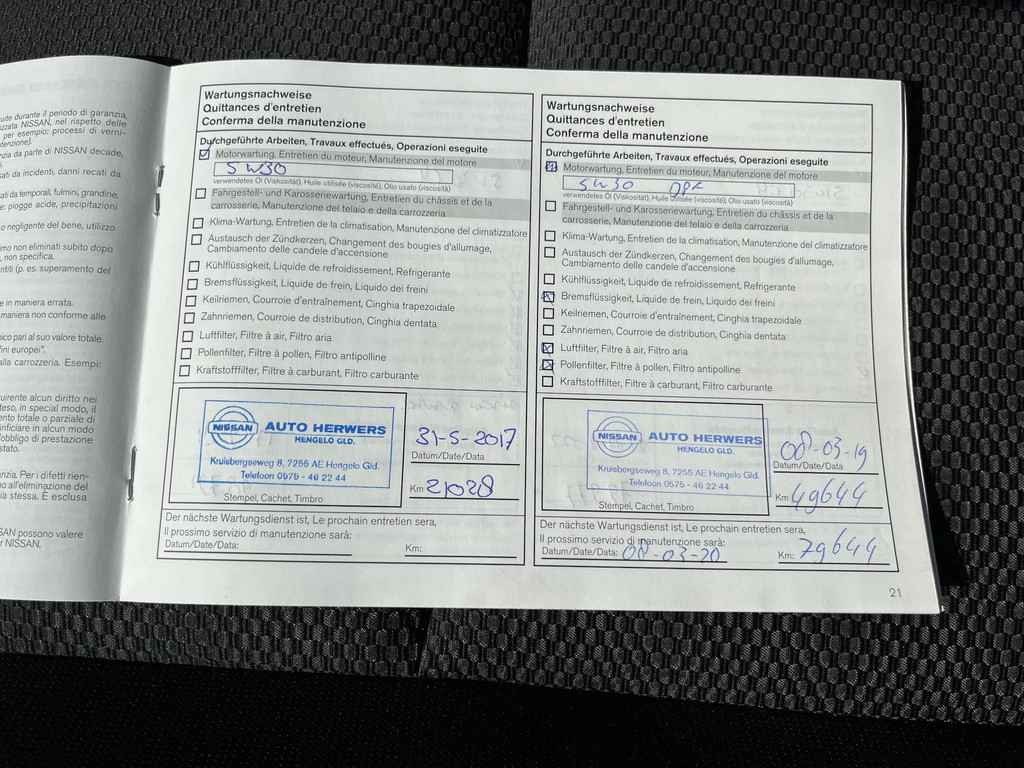 ude durante il periodo di garanzia,
zzata NISSAN, nel rispetto delle
per esempio: processi di verni-
tenzione).
nzia da parte di NISSAN decade,
sati da incidenti, danni recati da
ati da temporali, fulmini, grandine,
e: piogge acide, precipitazioni
o negligente del bene, utilizzo
mo non eliminati subito dopo
, non specifica.
ntiti (p. es. superamento del
e in maniera errata.
maniera non conforme alle
ico pari al suo valore totale.
ini europei".
alla carrozzeria. Esempi:
uirente alcun diritto nei
teso, in special modo, il
ento totale o parziale di
inficiare in alcun modo
'obbligo di prestazione
stato.
nzia. Per i difetti rien-
o all'eliminazione del
a stessa. È esclusa
SAN possono valere
r NISSAN.
Wartungsnachweise
Quittances d'entretien
Conferma della manutenzione
Durchgeführte Arbeiten, Travaux effectués, Operazioni eseguite
Motorwartung, Entretien du moteur, Manutenzione del motore
5W30
verwendetes Öl (Viskosität), Huile utilisée (viscosité), Olio usato (viscosità)
Fahrgestell- und Karosseriewartung, Entretien du châssis et de la
carrosserie, Manutenzione del telaio e della carrozzeria
Klima-Wartung, Entretien de la climatisation, Manutenzione del climatizzatore
Austausch der Zündkerzen, Changement des bougies d'allumage,
Cambiamento delle candele d'accensione
Kühlflüssigkeit, Liquide de refroidissement, Refrigerante
Bremsflüssigkeit, Liquide de frein, Liquido dei freini
Keilriemen, Courroie d'entraînement, Cinghia trapezoidale
Zahnriemen, Courroie de distribution, Cinghia dentata
Luftfilter, Filtre à air, Filtro aria
Pollenfilter, Filtre à pollen, Filtro antipolline
Kraftstofffilter, Filtre à carburant, Filtro carburante
NISSAN AUTO HERWERS
HENGELO GLD.
Kruisbergseweg 8, 7255 AE Hengelo Gld.
Telefoon 0575 - 46 22 44
Stempel, Cachet, Timbro
31-5-2017
Datum/Date/Data
Km 21028
Der nächste Wartungsdienst ist, Le prochain entretien sera,
Il prossimo servizio di manutenzione sarà:
Datum/Date/Data: Km:
Wartungsnachweise
Quittances d'entretien
Conferma della manutenzione
Durchgeführte Arbeiten, Travaux effectués, Operazioni eseguite
Motorwartung, Entretien du moteur, Manutenzione del motore
5W30 DPF
verwendetes Öl (Viskosität), Huile utilisée (viscosité), Olio usato (viscosità)
Fahrgestell- und Karosseriewartung, Entretien du châssis et de la
carrosserie, Manutenzione del telaio e della carrozzeria
Klima-Wartung, Entretien de la climatisation, Manutenzione del climatizzatore
Austausch der Zündkerzen, Changement des bougies d'allumage,
Cambiamento delle candele d'accensione
Kühlflüssigkeit, Liquide de refroidissement, Refrigerante
Bremsflüssigkeit, Liquide de frein, Liquido dei freini
Keilriemen, Courroie d'entraînement, Cinghia trapezoidale
Zahnriemen, Courroie de distribution, Cinghia dentata
Luftfilter, Filtre à air, Filtro aria
Pollenfilter, Filtre à pollen, Filtro antipolline
Kraftstofffilter, Filtre à carburant, Filtro carburante
NISSAN AUTO HERWERS
HENGELO GLD.
Kruisbergseweg 8, 7255 AE Hengelo Gld.
Telefoon 0575 - 46 22 44
Stempel, Cachet, Timbro
08-03-19
Datum/Date/Data
Km 49644
Der nächste Wartungsdienst ist, Le prochain entretien sera,
Il prossimo servizio di manutenzione sarà:
Datum/Date/Data: 08-03-20 Km: 79644
21